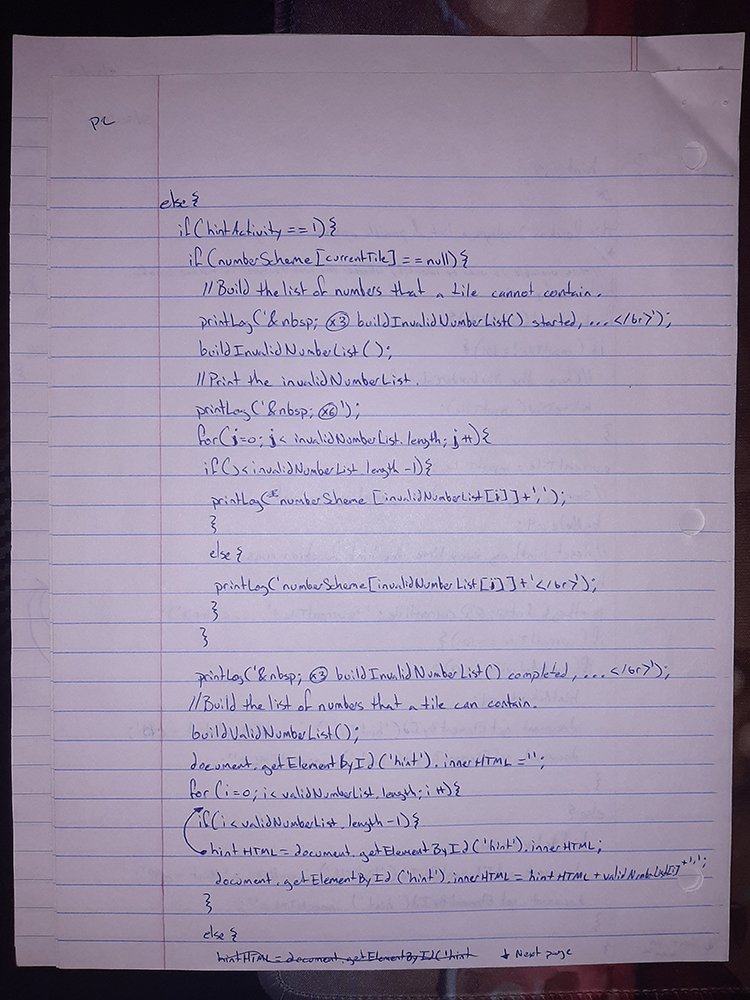 P2
else {
if (hintActivity == 1) {
if (numberScheme [currentTile] == null) {
// Build the list of numbers that a tile cannot contain.
printLog('&nbsp; x3 buildInvalidNumberList() started, ... </br>');
buildInvalidNumberList();
// Print the invalidNumberList.
printLog('&nbsp; x6');
for (j=0; j < invalidNumberList.length; j++) {
if (j < invalidNumberList.length -1) {
printLog( numberScheme [invalidNumberList[j]] + ',');
}
else {
printLog('numberScheme[invalidNumberList[j]] + '</br>');
}
}
printLog('&nbsp; x3 buildInvalidNumberList() completed, ... </br>');
// Build the list of numbers that a tile can contain.
buildValidNumberList();
document.getElementById('hint').innerHTML = '';
for (i=0; i < validNumberList.length; i++) {
if (i < validNumberList.length -1) {
hintHTML = document.getElementById('hint').innerHTML;
document.getElementById('hint').innerHTML = hintHTML + validNumberList[i] + ',';
}
else {
hintHTML = document.getElementById('hint ↓ Next page